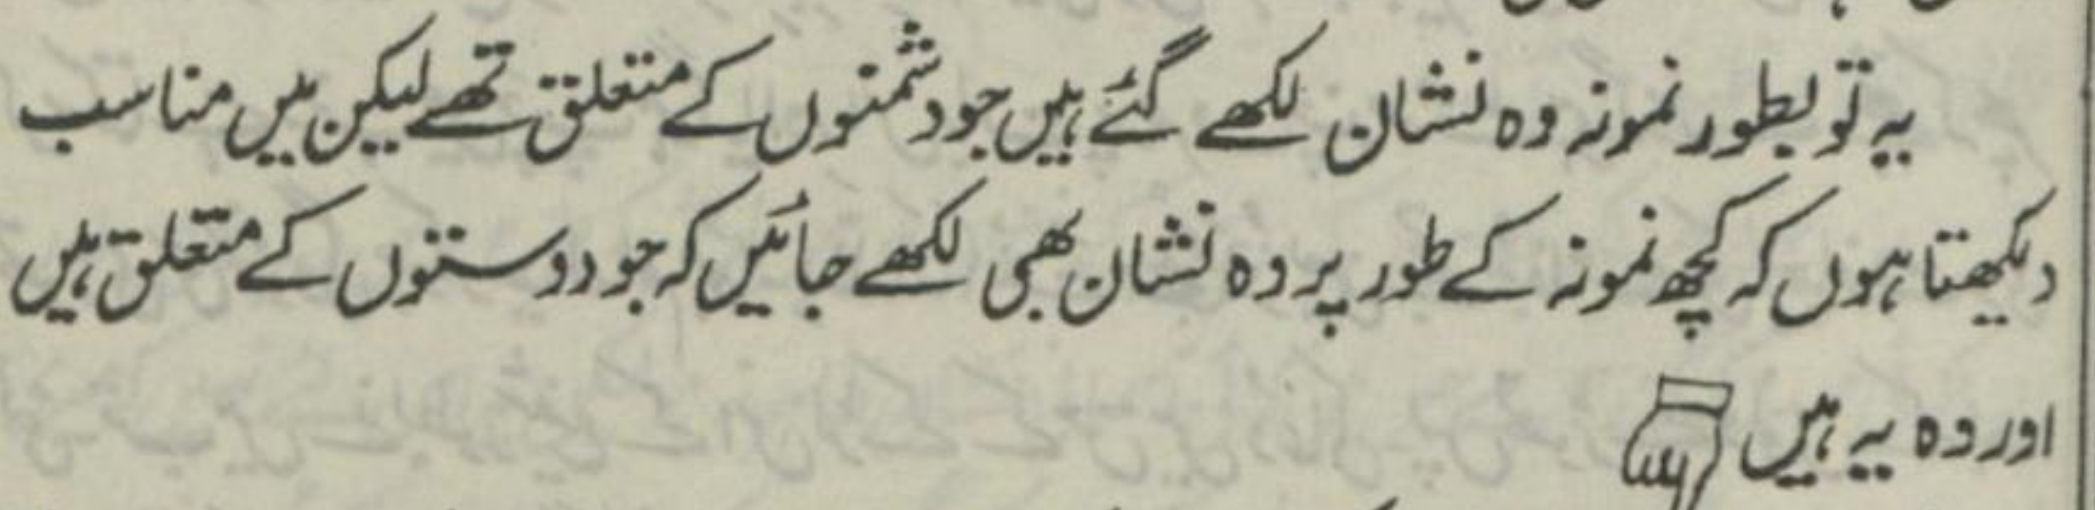 یہ تو بطور نمونہ وہ نشان لکھے گئے ہیں جو دشمنوں کے متعلق تھے لیکن میں مناسب
دیکھتا ہوں کہ کچھ نمونہ کے طور پر وہ نشان بھی لکھے جائیں کہ جو دوستوں کے متعلق ہیں
اور وہ یہ ہیں